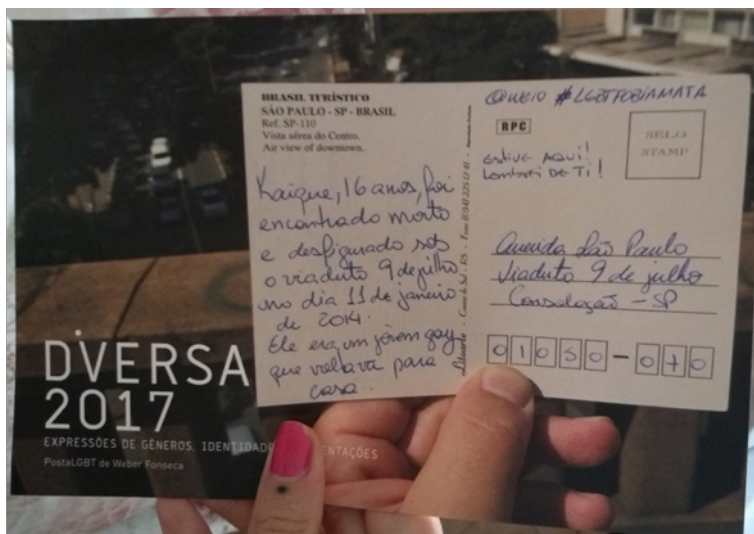 BRASIL TURÍSTICO
SÃO PAULO - SP - BRASIL
Ref. SP-110
Vista aérea do Centro.
Air view of downtown.
Kaique, 16 anos, foi
encontrado morto
e desfigurado sob
o viaduto 9 de julho
no dia 11 de janeiro
de 2014.
Ele era um jovem gay
que voltava para
casa.
#LGBTFOBIAMATA
RPC
SELO
STAMP
Estive AQUI!
Lembrei DE TI!
Querida São Paulo
Viaduto 9 de julho
Consolação - SP
01050-070
DVERSA
2017
EXPRESSÕES DE GÊNEROS, IDENTIDADE
NTAÇÕES
PostaLGBT de Weber Fonseca